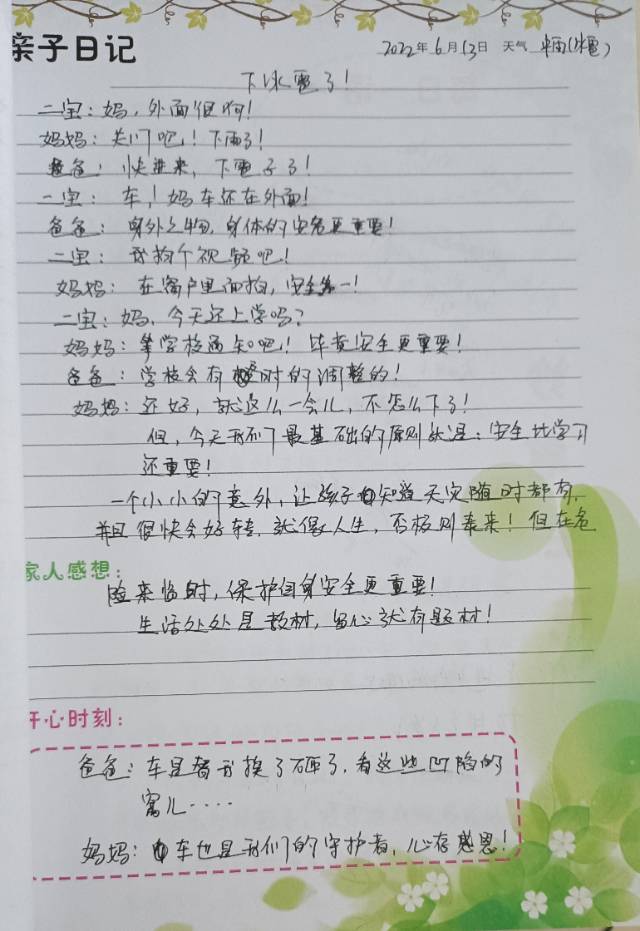 亲子日记
2022年6月13日 天气 雨(冰雹)
下冰雹了!
二宝:妈,外面很响!
妈妈:关门吧!下雨了!
爸爸:快进来,下雹子了!
一宝:车!妈车还在外面!
爸爸:身外之物,身体的安危更重要!
二宝:我拍个视频吧!
妈妈:在窗户里面拍,安全第一!
二宝:妈,今天还上学吗?
妈妈:等学校通知吧!毕竟安全更重要!
爸爸:学校会有及时的调整的!
妈妈:还好,就这么一会儿,不怎么下了!
但,今天我们最基础的原则就是:安全比学习
还重要!
一个小小的意外,让孩子知道天灾随时都有,
并且很快会好转,就像人生,否极则泰来!但在危
家人感想:
险来临时,保护自身安全更重要!
生活处处是教材,留心就有题材!
开心时刻:
爸爸:车是替我挨了砸了,看这些凹陷的
窝儿····
妈妈:车也是我们的守护者,心存感恩!